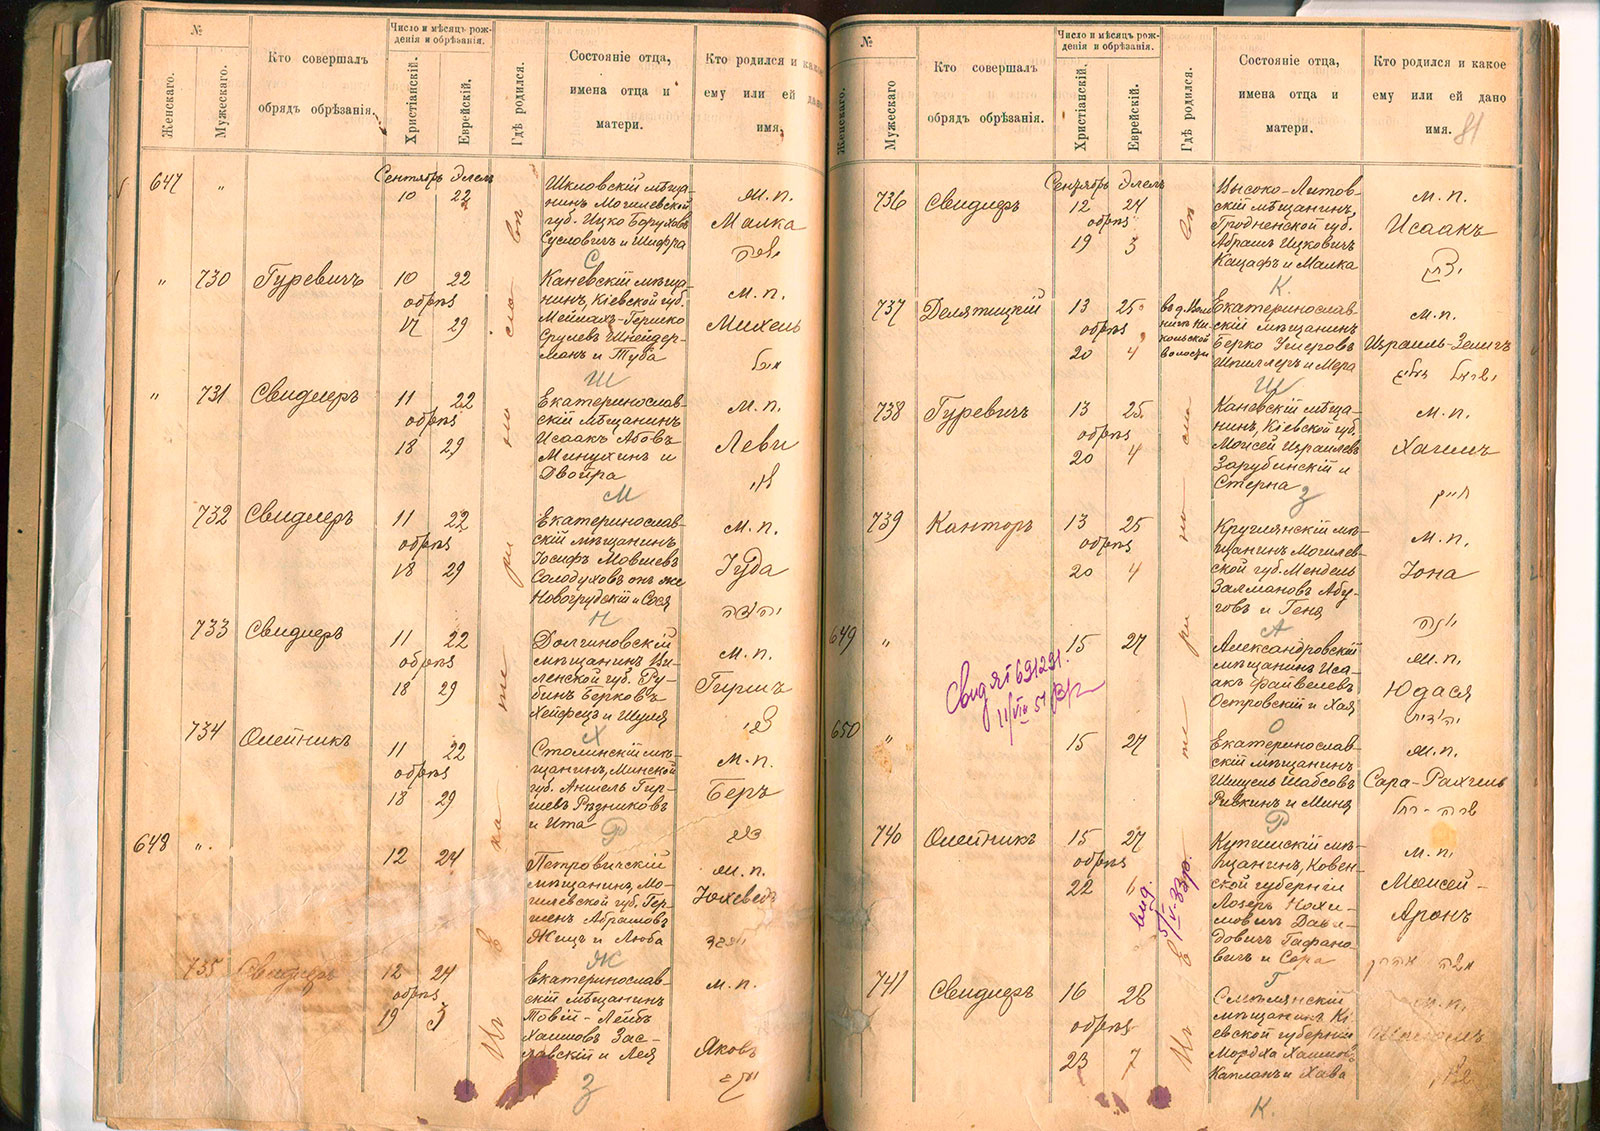 №
Число и мѣсяцъ рож-
денія и обрѣзанія.
Женскаго.
Мужескаго.
Кто совершалъ
обрядъ обрѣзанія.
Христіанскій.
Еврейскій.
Гдѣ родился.
Состояніе отца,
имена отца и
матери.
Кто родился и какое
ему или ей дано
имя.
647
"
Сентябрь Элелъ
10 22
Шкловскій мѣща-
нинъ Могилевской
губ. Ицко Боруховъ
Сусловичъ и Шифра
м. п.
Малка
С
"
730
Гуревичъ
10 22
обрѣз
17 29
Каневскій мѣща-
нинъ, Кіевской губ.
Мейлахъ-Гершко
Срулевъ Шнейдер-
манъ и Туба
м. п.
Михель
Ш
"
731
Свидлеръ
11 22
обрѣз
18 29
Екатеринослав-
скій мѣщанинъ
Исаакъ Абовъ
Минухинъ и
Двойра
м. п.
Леви
לוי
М
732
Свидлеръ
11 22
обрѣз
18 29
Екатеринослав-
скій мѣщанинъ
Іосифъ Мовшевъ
Солодуховъ онъ же
Новогрудскій и Сося
м. п.
Іуда
יהודה
Н
733
Свидлеръ
11 22
обрѣз
18 29
Долгиновскій
мѣщанинъ Ви-
ленской губ. Ру-
бинъ Берковъ
Хейфецъ и Шуля
м. п.
Гиршъ
צבי
Х
734
Олейникъ
11 22
обрѣз
18 29
Столинскій мѣ-
щанинъ, Минской
губ. Аншель Гир-
шевъ Рѣзниковъ
и Ита
м. п.
Беръ
Р
648
"
12 24
Петровичскій
мѣщанинъ, Мо-
гилевской губ. Гер-
шенъ Абрамовъ
Жицъ и Люба
м. п.
Юхеведъ
יוכבד
Ж
735
Свидлеръ
12 24
обрѣз
19 3
Екатеринослав-
скій мѣщанинъ
Товій-Лейбъ
Хаимовъ Зас-
лавскій и Лея
м. п.
Яковъ
יעקב
З
Въ Екатеринославѣ
№
Число и мѣсяцъ рож-
денія и обрѣзанія.
Женскаго.
Мужескаго
Кто совершалъ
обрядъ обрѣзанія.
Христіанскій.
Еврейскій.
Гдѣ родился.
Состояніе отца,
имена отца и
матери.
Кто родился и какое
ему или ей дано
имя.
81
736
Свидлеръ
Сентябрь Элелъ
12 24
обрѣз
19 3
Высоко-Литов-
скій мѣщанинъ,
Гродненской губ.
Абрамъ Ицковичъ
Кацафъ и Малка
м. п.
Исаакъ
יצחק
К.
737
Делятицкій
13 25
обрѣз
20 4
Екатеринослав-
скій мѣщанинъ
Берко Умеровъ
Шпиллеръ и Мера
м. п.
Израиль-Зелигъ
ישראל זעליג
Ш
738
Гуревичъ
13 25
обрѣз
20 4
Каневскій мѣща-
нинъ, Кіевской губ.
Моисей Израилевъ
Зарубинскій и
Стерна
м. п.
Хаимъ
חיים
З
739
Канторъ
13 25
обрѣз
20 4
Круглянскій мѣ-
щанинъ Могилев-
ской губ. Мендель
Залмановъ Абу-
говъ и Геня
м. п.
Іона
יונה
А
649
"
15 27
Александровскій
мѣщанинъ Иса-
акъ Файвелевъ
Островскій и Хая
м. п.
Юдася
יהודית
О
650
"
15 27
Екатеринослав-
скій мѣщанинъ
Шицель Шабсовъ
Ривкинъ и Миня
м. п.
Сара-Рахиль
שרה-רחל
Р
740
Олейникъ
15 27
обрѣз
22 6
Купишскій мѣ-
щанинъ, Ковен-
ской губерніи
Лозеръ Нохи-
мовичъ Дави-
довичъ Гафано-
вичъ и Сора
м. п.
Моисей-
Аронъ
משה אהרן
Г
741
Свидлеръ
16 28
обрѣз
23 7
Смѣлянскій
мѣщанинъ Кі-
евской губерніи
Мордха Хаимов.
Капланъ и Хава
м. п.
К.
Въ Екатеринославѣ